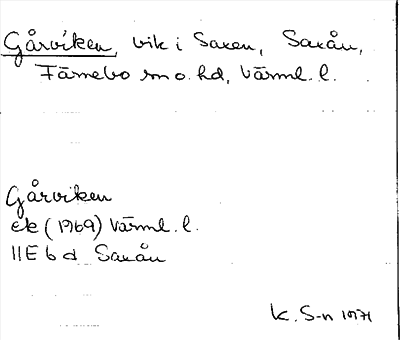 Gårviken, vik i Saxen, Saxån,
Färnebo sn o. hd, Värml. l.
Gårviken
ek (1969) Värml. l.
11E b d Saxån
K. S-n 1971